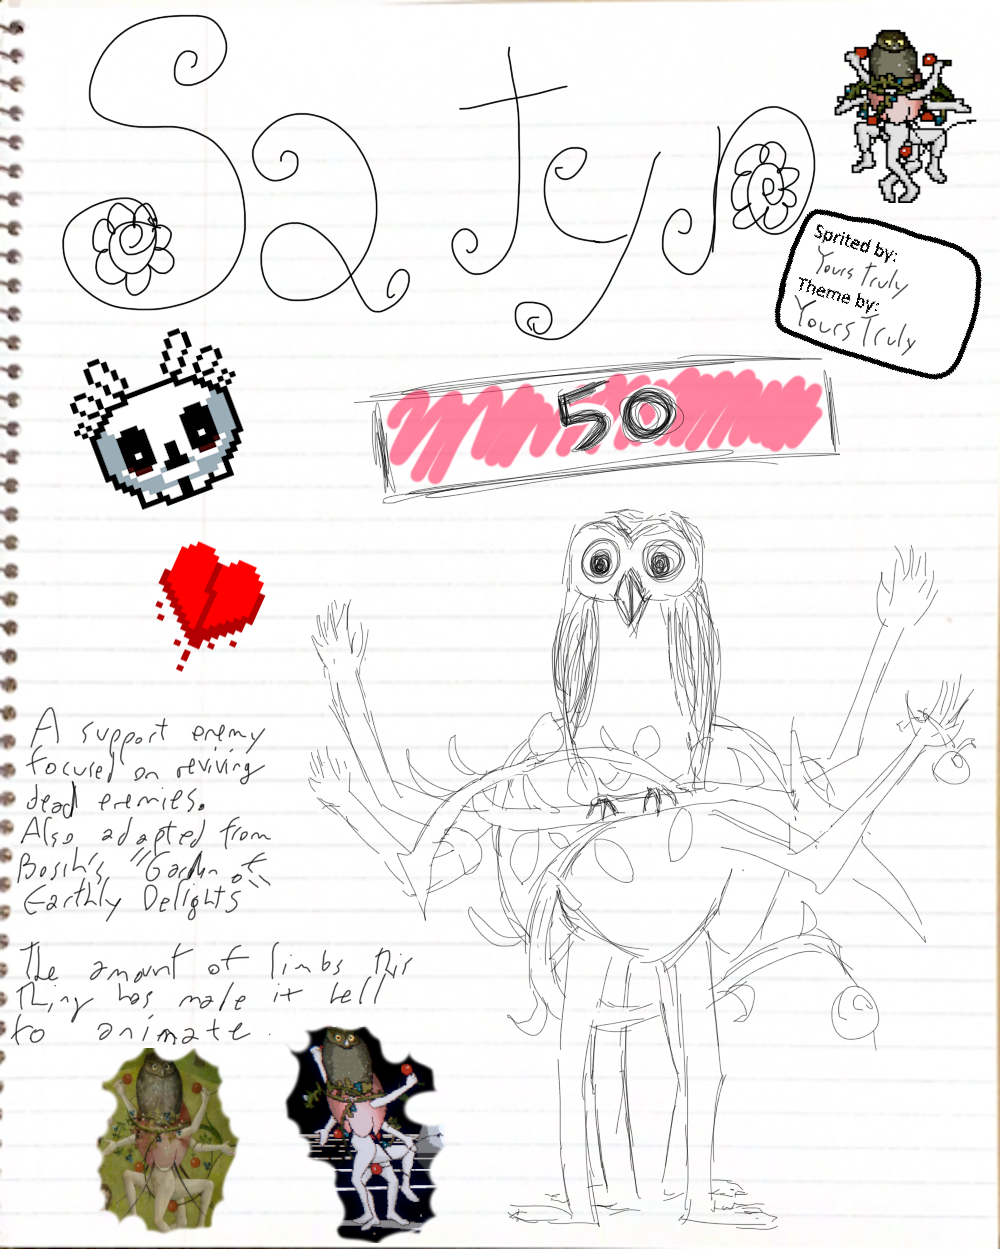 Satyr
Sprited by:
Yours truly
Theme by:
Yours Truly
50
A support enemy
focused on reviving
dead enemies.
Also adapted from
Bosch's "Garden of
Earthly Delights"
The amount of limbs this
thing has made it hell
to animate.